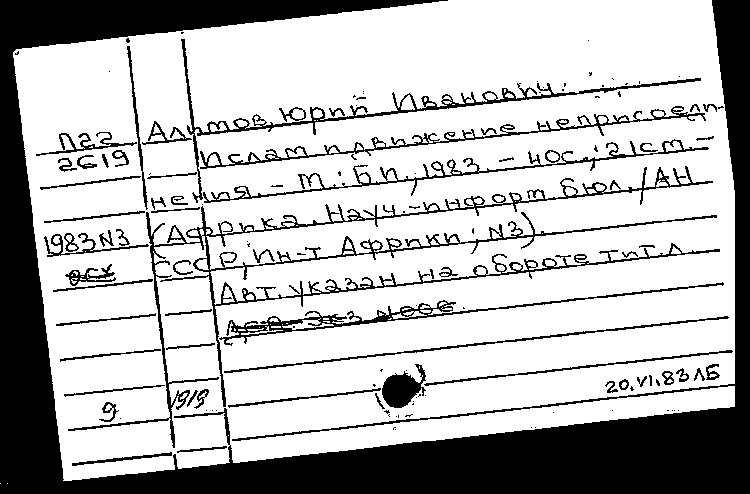 Алимов, Юрий Иванович.
П22
2619
Ислам и движение неприсоеди-
нения. – М.: Б.и., 1983. – 40с.; 21см. –
1983 N3
(Африка. Науч.-информ бюл. / АН
СССР, Ин-т Африки; N3).
Авт. указан на обороте тит. л.
9
1919
20.VI.83 ЛБ